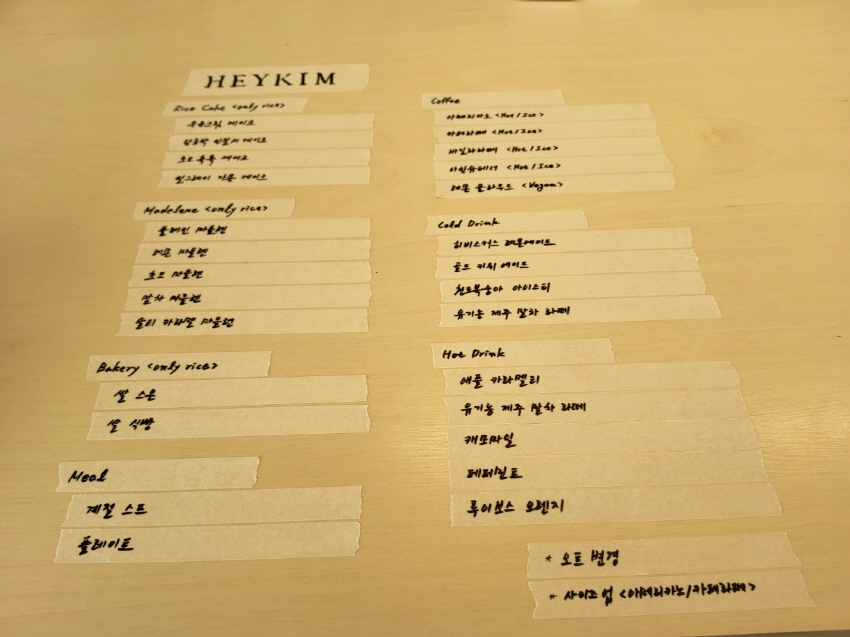 HEYKIM
Rice Cake <only rice>
우유크림 케이크
단호박 인절미 케이크
초코 쑥쑥 케이크
얼그레이 자몽 케이크
Madelene <only rice>
플레인 마들렌
레몬 마들렌
초코 마들렌
말차 마들렌
솔티 카라멜 마들렌
Bakery <only rice>
쌀 스콘
쌀 식빵
Meal
계절 스프
플레이트
Coffee
아메리카노 <Hot / Ice>
카페라떼 <Hot / Ice>
바닐라라떼 <Hot / Ice>
아인슈페너 <Hot / Ice>
레몬 클라우드 <Vegan>
Cold Drink
히비스커스 레몬에이드
골드 키위 에이드
천도복숭아 아이스티
유기농 제주 말차 라떼
Hot Drink
애플 카라멜티
유기농 제주 말차 라떼
캐모마일
페퍼민트
루이보스 오렌지
* 오트 변경
* 사이즈 업 <아메리카노/카페라떼>